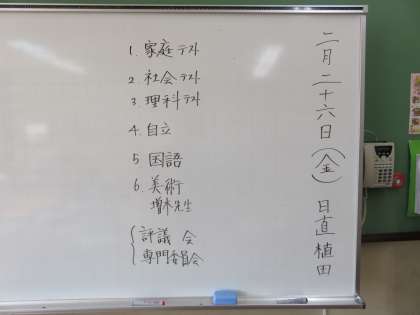 二月二十六日(金) 日直 植田
1. 家庭テスト
2 社会テスト
3. 理科テスト
4. 自立
5 国語
6. 美術
増木先生
評議会
専門委員会